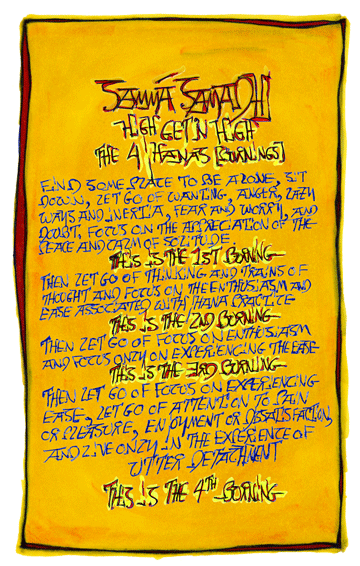 SAMMA SAMADHI
HIGH GET'N HIGH
THE 4 JHANAS [BURNINGS]
FIND SOME PLACE TO BE ALONE, SIT
DOWN, LET GO OF WANTING, ANGER, LAZY
WAYS AND INERTIA, FEAR AND WORRY, AND
DOUBT, FOCUS ON THE APPRECIATION OF THE
PEACE AND CALM OF SOLITUDE.
THIS IS THE 1ST BURNING
THEN LET GO OF THINKING AND TRAINS OF
THOUGHT AND FOCUS ON THE ENTHUSIASM AND
EASE ASSOCIATED WITH JHANA PRACTICE
THIS IS THE 2ND BURNING
THEN LET GO OF FOCUS ON ENTHUSIASM
AND FOCUS ONLY ON EXPERIENCING THE EASE
THIS IS THE 3RD BURNING
THEN LET GO OF FOCUS ON EXPERIENCING
EASE, LET GO OF ATTENTION TO PAIN
OR PLEASURE, ENJOYMENT OR DISSATISFACTION,
AND LIVE ONLY IN THE EXPERIENCE OF
UTTER DETACHMENT
THIS IS THE 4TH BURNING